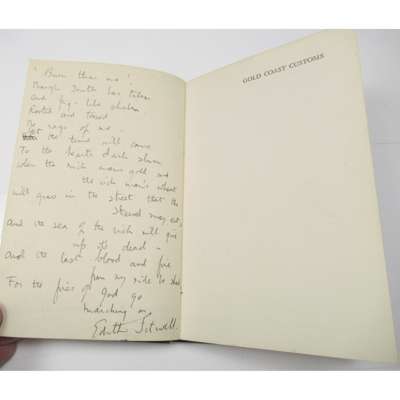 "Bury them
Though Death has taken
And pig-like shaken
Rooted and tossed
The rags of me.
Yet the time will come
To the heart's dark slum
when the rich man's gold and
the rich man's wheat
will grow in the street that the
Starved may eat,
and the sea of the rich will give
up its dead –
and the last blood and fire
from my side be shed.
For the fires of God go
marching on
Edith Sitwell.
GOLD COAST CUSTOMS